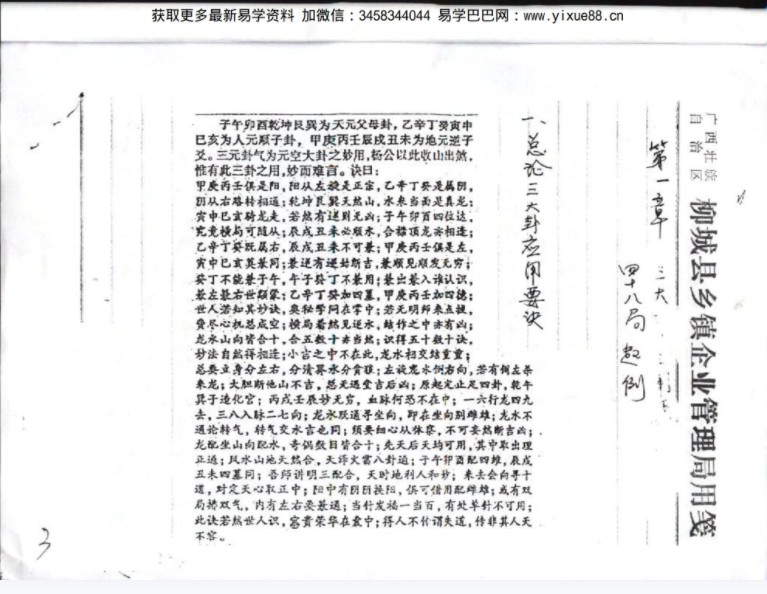 获取更多最新易学资料 加微信：3458344044 易学巴巴网：www.yixue88.cn
广西壮族
自治区
柳城县乡镇企业管理局用笺
第一章
三大
四十八局起例
一、总论三大卦应用要诀
子午卯酉乾坤艮巽为天元父母卦，乙辛丁癸寅申
巳亥为人元顺子卦，甲庚丙壬辰戌丑未为地元逆子
爻。三元卦气为元空大卦之妙用，杨公以此收山出煞，
惟有此三卦之用，妙而难言。诀曰：
甲庚丙壬俱是阳，阳从左旋是正宗，乙辛丁癸是属阴，
阴从右路转相通；乾坤艮巽天然山，水来当面是真龙；
寅申巳亥骑龙走，若然有逆则无凶；子午卯酉四位达，
究竟横局可随从；辰戌丑未必顺水，合襟顶龙亦相连；
乙辛丁癸既属右，辰戌丑未不可兼；甲庚丙壬俱是左，
寅申巳亥莫兼同；兼逆有逆始断吉，兼顺见顺发无穷；
癸丁不能兼子午，午子癸丁不兼用；兼出兼入谁认识，
兼左兼右世颠蒙；乙辛丁癸加四墓，甲庚丙壬加四德；
世人若知其妙诀，奥秘学问在掌中；若无明师来点拨，
费尽心机总成空；横局着然见逆水，结作之中亦有凶；
龙水山向皆合十，合五数十亦当然；识得五十数十诀，
妙法自然得相连；小吉之中不在此，龙水相交结重重；
总要立身分左右，分清算水分贪狼；左旋忽水倒右向，若有倒左杀
来龙；大胆断他山不吉，忽天遇堂吉后凶；原起定止足四卦，乾午
巽子造化宫；丙戌壬辰妙无穷，血脉何恐不在中；一六行龙四九
去，三八入脉二七向；龙水既通寻坐向，即在坐向别雌雄；龙水不
通论转气，转气交水言也同；须要细心从体察，不可妄然断吉凶；
龙配坐山向配水，奇偶数目皆合十；先天后天均可用，其中取出理
正通；艮水山地天然合，天泽火雷八卦通；子午卯酉配四维，辰戌
丑未四墓同；吾师讲明三配合，天时地利人和妙；来去会向寻十
道，对定天心取正中；阳中有阴阴换阳，俱可借用配雌雄；或有双
局挤双气，内有左右要兼通；当什发福一当百，有处草针不可用；
此诀若然世人识，富贵荣华在袁中；得人不传谓失道，传非其人天
不容。
3